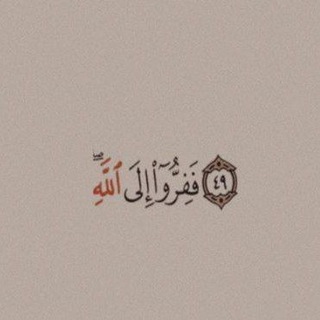 ٤٩ فَفِرُّوٓا۟ إِلَى ٱللَّهِۖ